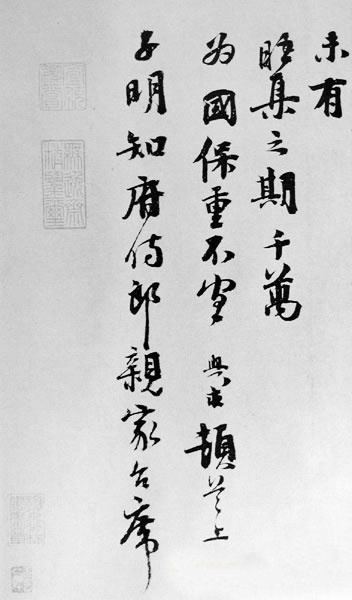 未有
晤集之期千萬
为國保重不宣 與求頓首上
子明知府侍郎親家台席